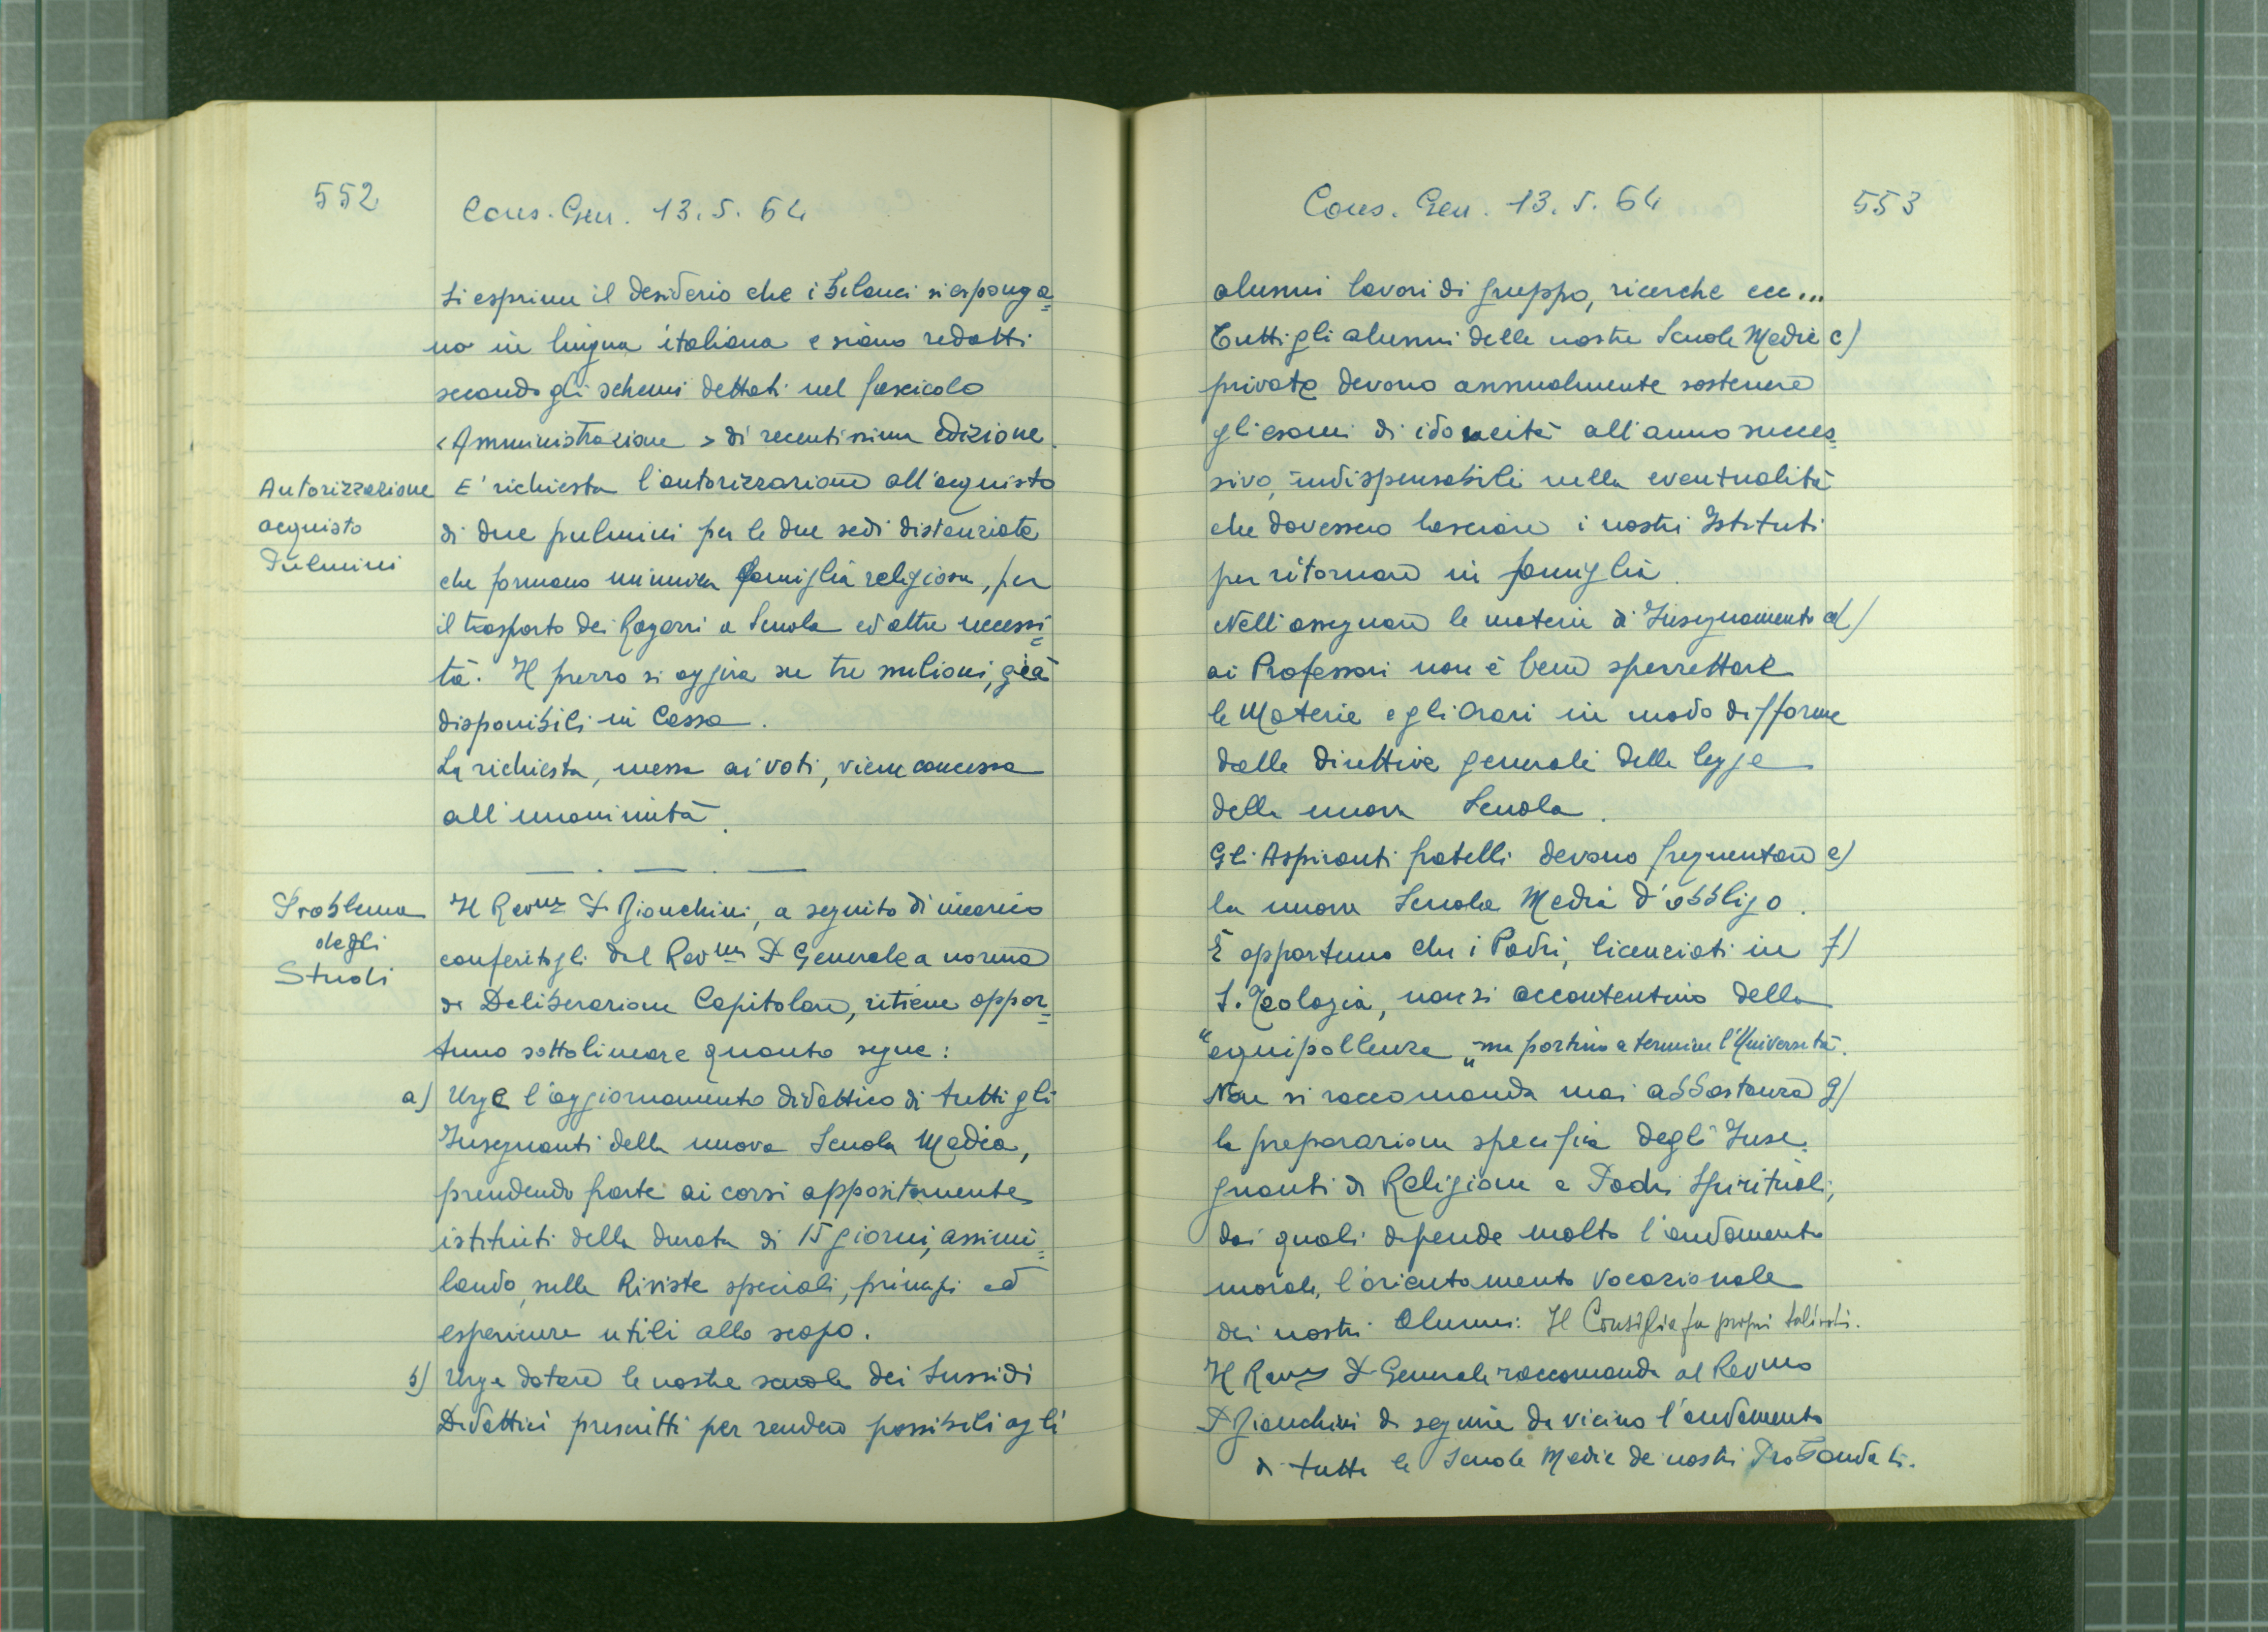 552
Cons. Gen. 13.5.64
Si esprime il desiderio che i bilanci si esponga=
no in lingua italiana e siano redatti
secondo gli schemi dettati nel fascicolo
<Amministrazione> di recentissima edizione.
Autorizzazione
acquisto
Pulmini
E' richiesta l'autorizzazione all'acquisto
di due pulmini per le due sedi distanziate
che formano un'unica famiglia religiosa, per
il trasporto dei Ragazzi a Scuola ed altre necessi=
tà. Il prezzo si aggira su tre milioni, già
disponibili in Cassa.
La richiesta, messa ai voti, viene concessa
all'unanimità.
Problema
degli
Studi
Il Rev.mo P. Bianchini, a seguito di incarico
conferitogli dal Rev.mo P. Generale a norma
di Deliberazione Capitolare, ritiene oppor=
tuno sottolineare quanto segue:
a) Urge l'aggiornamento didattico di tutti gli
Insegnanti della nuova Scuola Media,
prendendo parte ai corsi appositamente
istituiti della durata di 15 giorni, assimi=
lando, sulle Riviste speciali, principi ed
esperienze utili allo scopo.
b) Urge dotare le nostre scuole dei Sussidi
Didattici prescritti per rendere possibili agli
Cons. Gen. 13.5.64
553
alunni lavori di gruppo, ricerche ecc...
Tutti gli alunni delle nostre Scuole Medie c)
private devono annualmente sostenere
gli esami di idoneità all'anno succes=
sivo, indispensabili nella eventualità
che dovessero lasciare i nostri Istituti
per ritornare in famiglia.
Nell'assegnare le materie di Insegnamento d)
ai Professori non è bene spezzettare
le Materie e gli Orari in modo difforme
dalle direttive generali della legge
della nuova Scuola.
Gli Aspiranti fratelli devono frequentare e)
la nuova Scuola Media d'obbligo.
È opportuno che i Padri, licenziati in f)
S. Teologia, non si accontentino della
"equipollenza" ma portino a termine l'Università.
Non si raccomanda mai abbastanza g)
la preparazione specifica degli Inse=
gnanti di Religione e Padri Spirituali,
dai quali dipende molto l'andamento
morale, l'orientamento vocazionale
dei nostri Alunni: Il Consiglio fa propri tali voti.
Il Rev.mo P. Generale raccomanda al Rev.mo
P. Bianchini di seguire da vicino l'andamento
di tutte le Scuole Medie dei nostri Probandati.